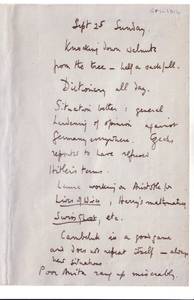 Sept 25 Sunday.
Knocking down walnuts
from the tree – half a sackful.
Dictionary all day.
Situation better: general
hardening of opinion against
Germany everywhere. Czechs
reported to have refused
Hitler's terms.
working on Aristotle for
Lives of Wives, Harry's
etc.
is a good game
and does not repeat itself – always
new situations.
Poor Anita rang up miserably